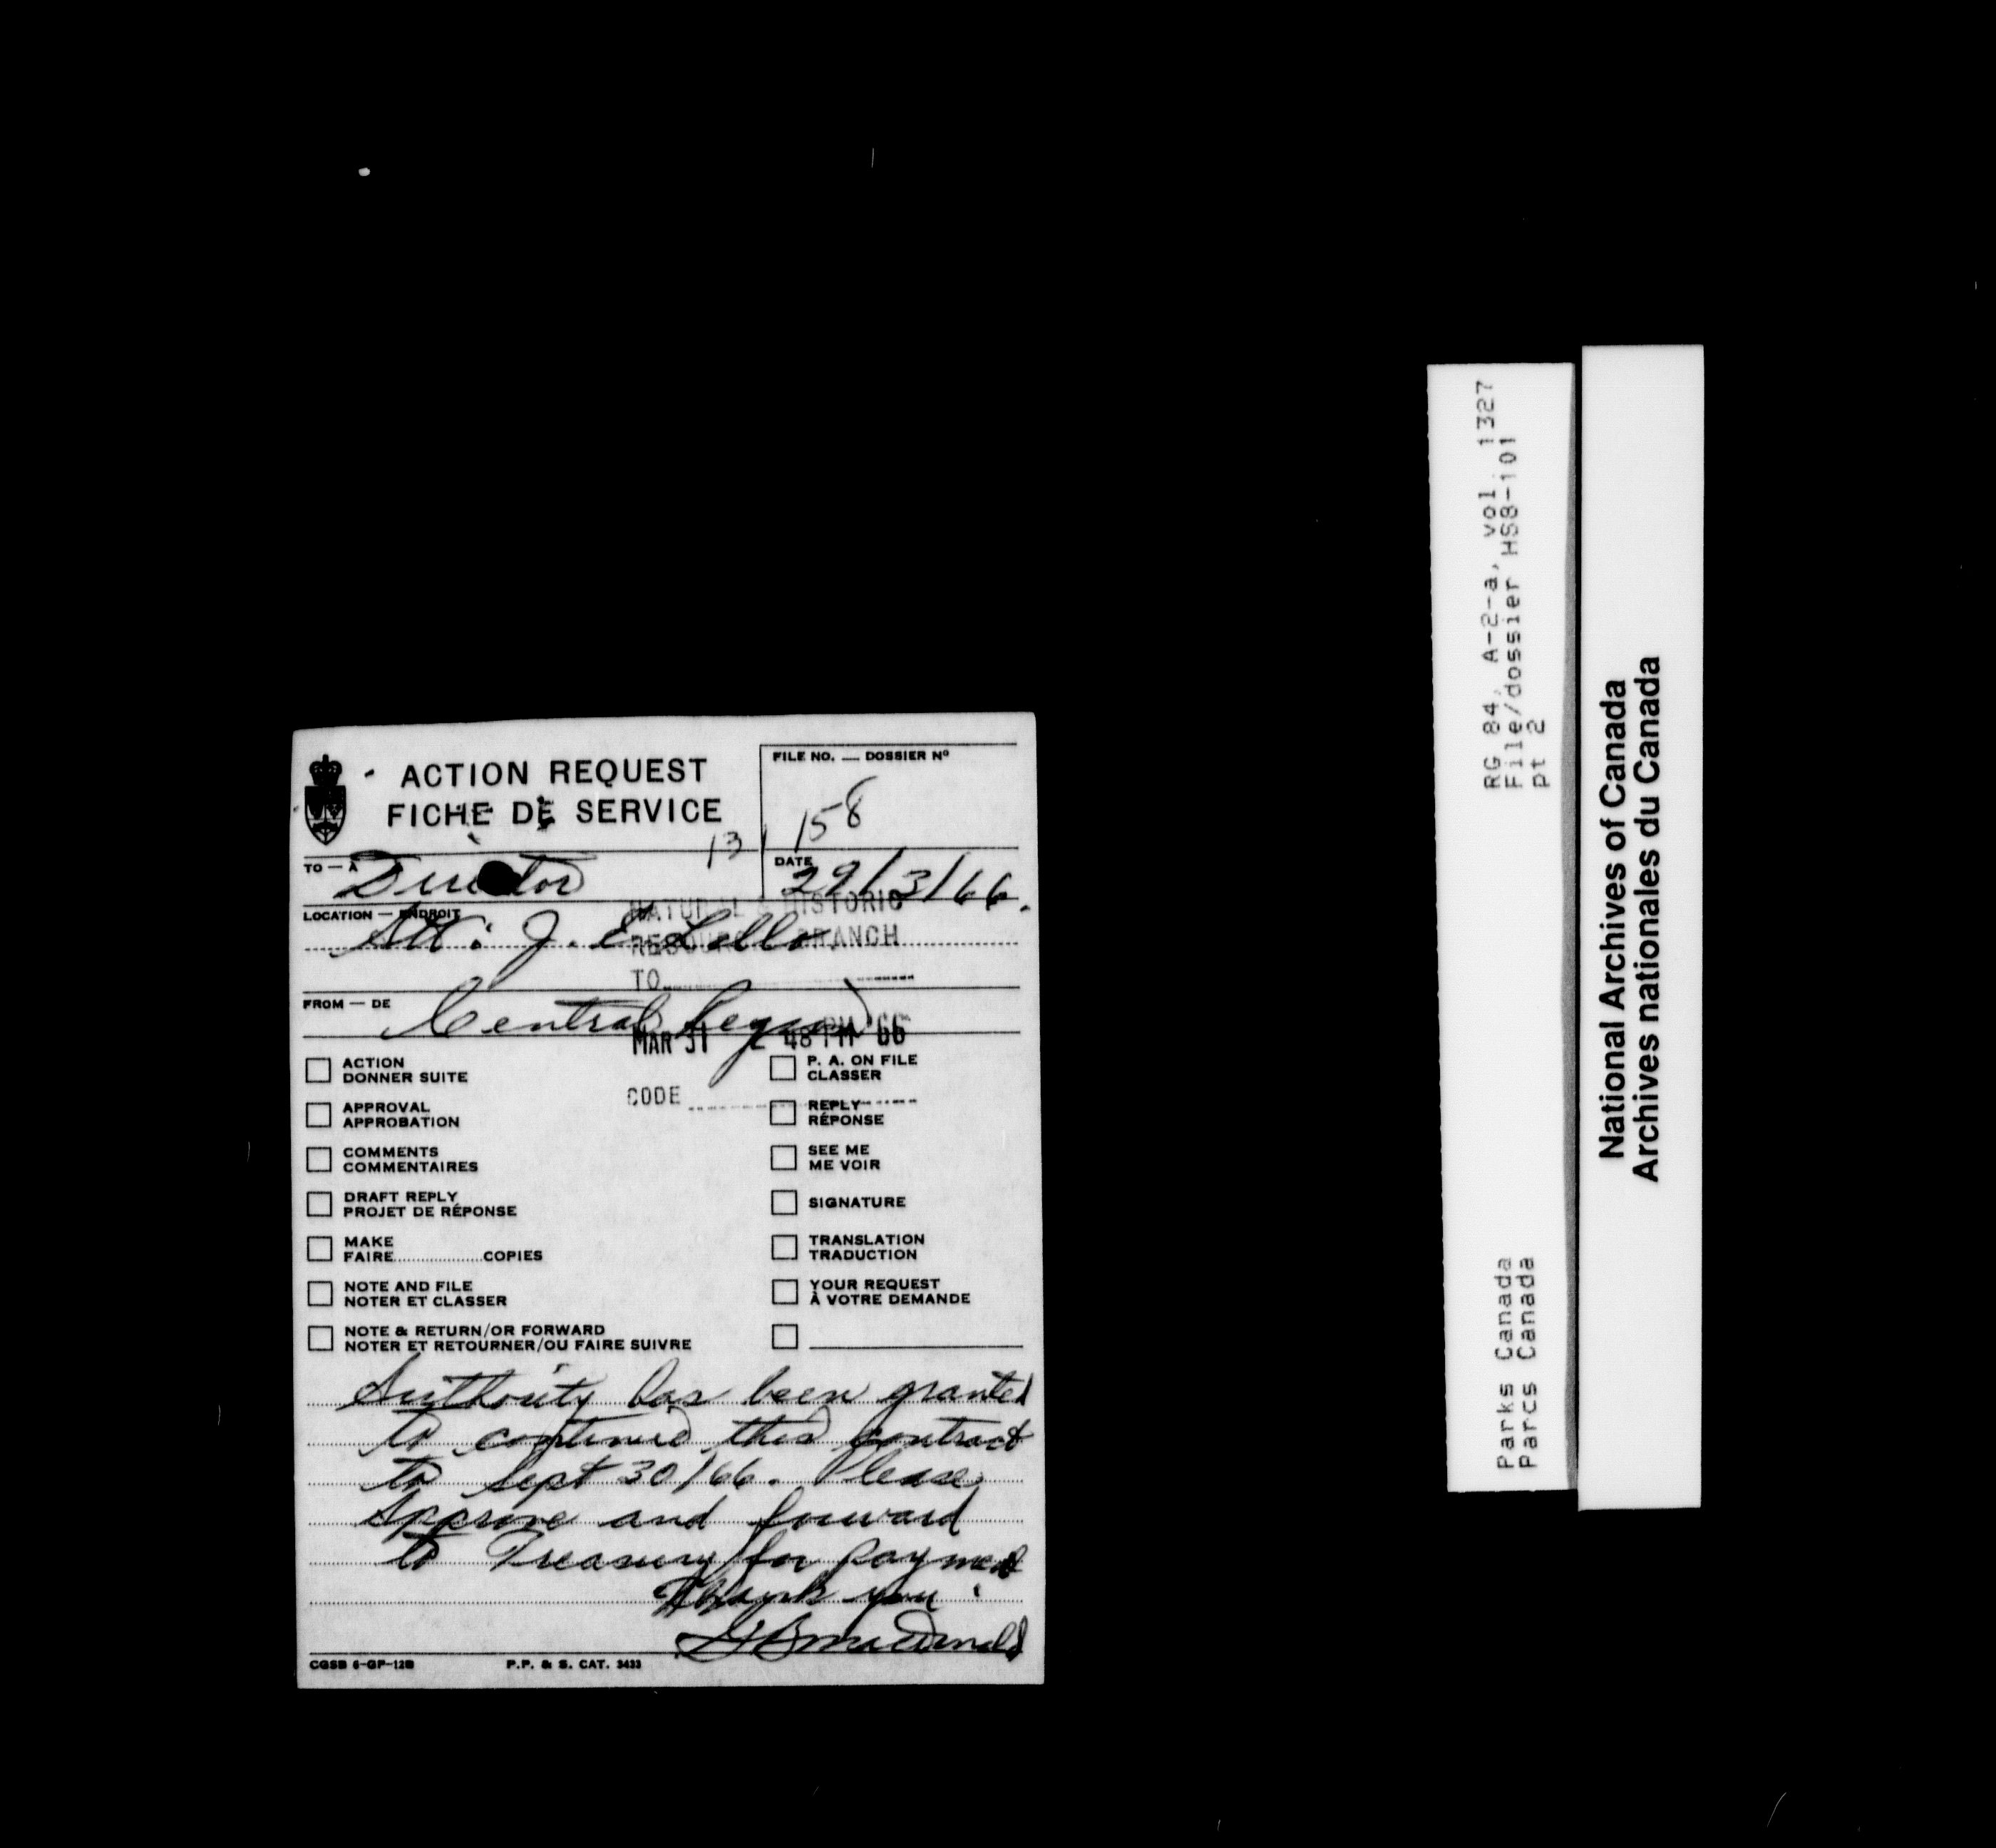 ACTION REQUEST
FICHE DE SERVICE
FILE NO. — DOSSIER Nº
13 158
TO — À Director
DATE 29/3/66.
LOCATION — ENDROIT
Att: J. E.
NATURAL & HISTORIC
RESOURCES BRANCH
TO
FROM — DE Central Region
MAR 31 2 48 PM '66
CODE
ACTION
DONNER SUITE
APPROVAL
APPROBATION
COMMENTS
COMMENTAIRES
DRAFT REPLY
PROJET DE RÉPONSE
MAKE
FAIRE..................COPIES
NOTE AND FILE
NOTER ET CLASSER
NOTE & RETURN/OR FORWARD
NOTER ET RETOURNER/OU FAIRE SUIVRE
P. A. ON FILE
CLASSER
REPLY
RÉPONSE
SEE ME
ME VOIR
SIGNATURE
TRANSLATION
TRADUCTION
YOUR REQUEST
À VOTRE DEMANDE
Authority has been granted
to continue this contract
to Sept 30/66. Please
Approve and forward
to Treasury for payment
Thank you.
CGSB 6-GP-12B
P.P. & S. CAT. 3433
RG 84, A-2-a, vol. 1327
File/dossier HS8-101
pt 2
Parks Canada
Parcs Canada
National Archives of Canada
Archives nationales du Canada